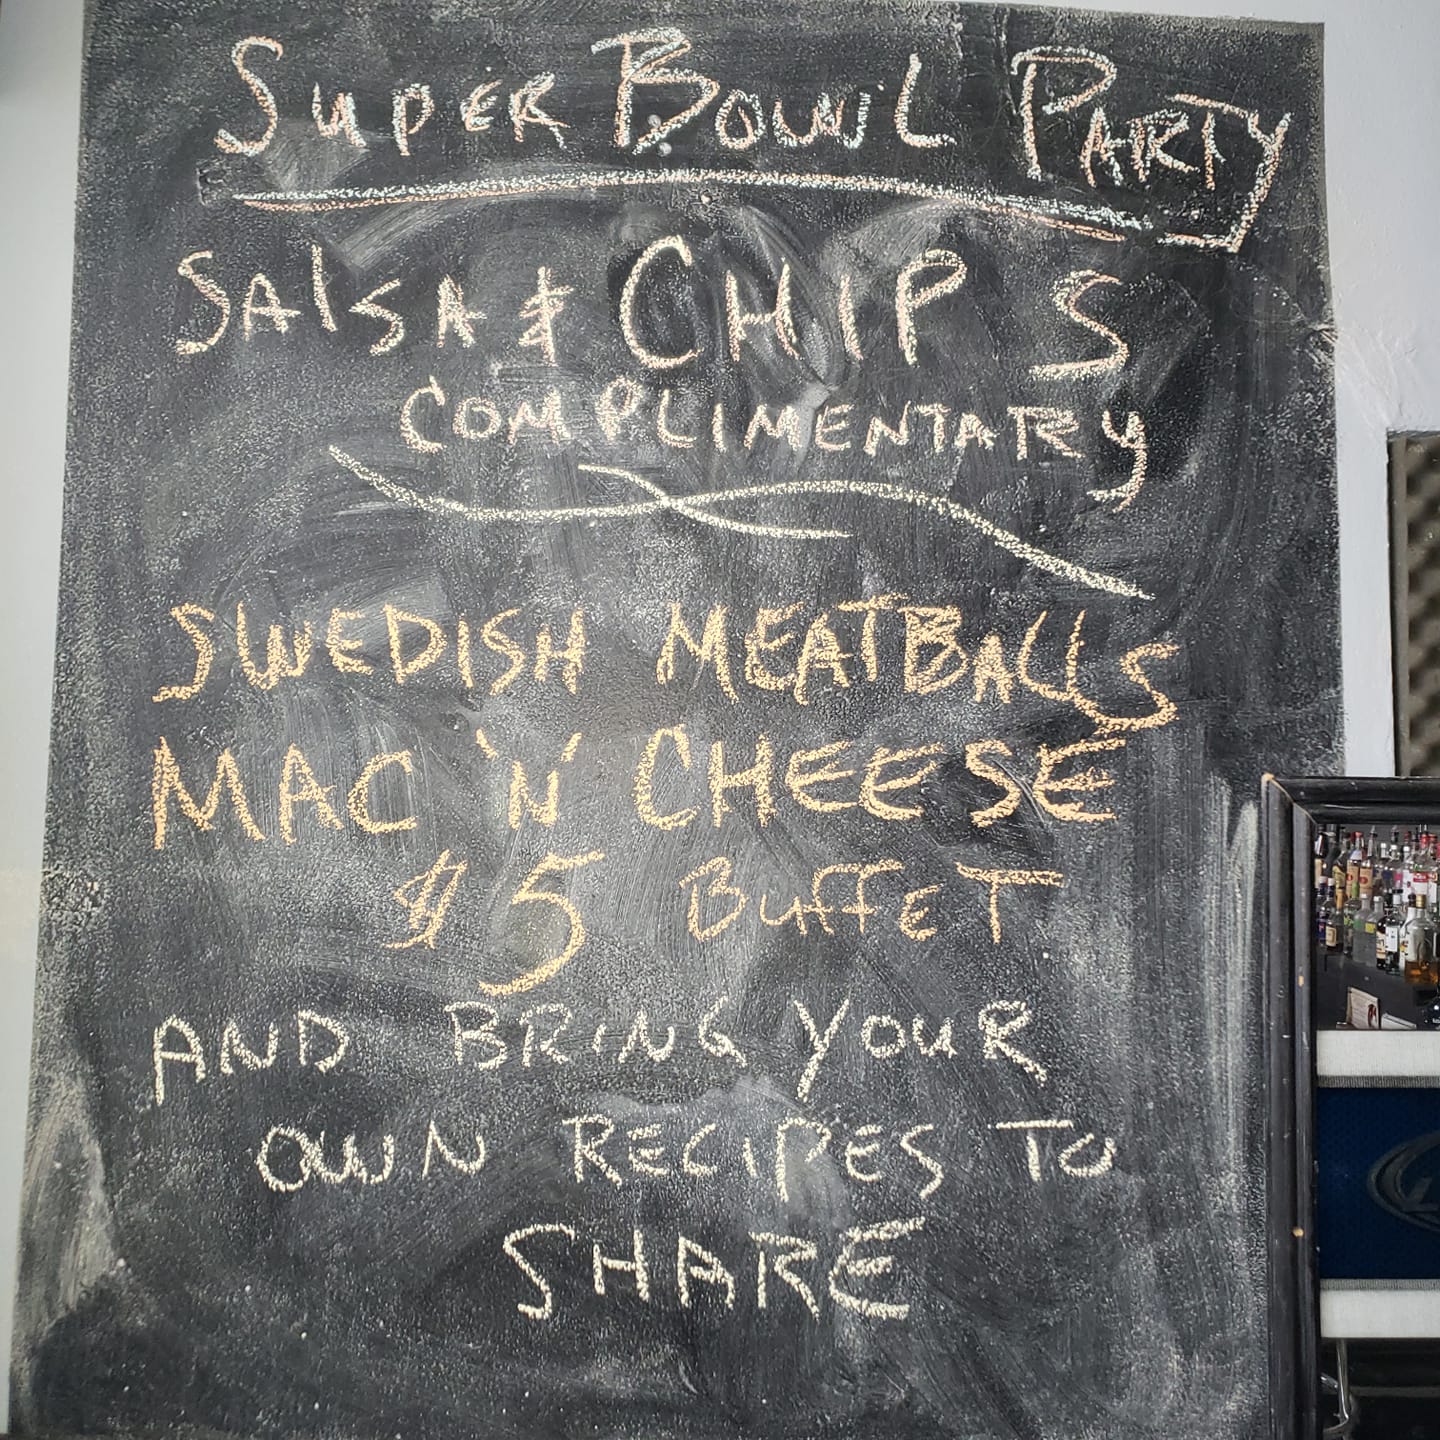 SUPER BOWL PARTY
SALSA & CHIPS
COMPLIMENTARY
SWEDISH MEATBALLS
MAC 'N' CHEESE
$5 BUFFET
AND BRING YOUR
OWN RECIPES TO
SHARE